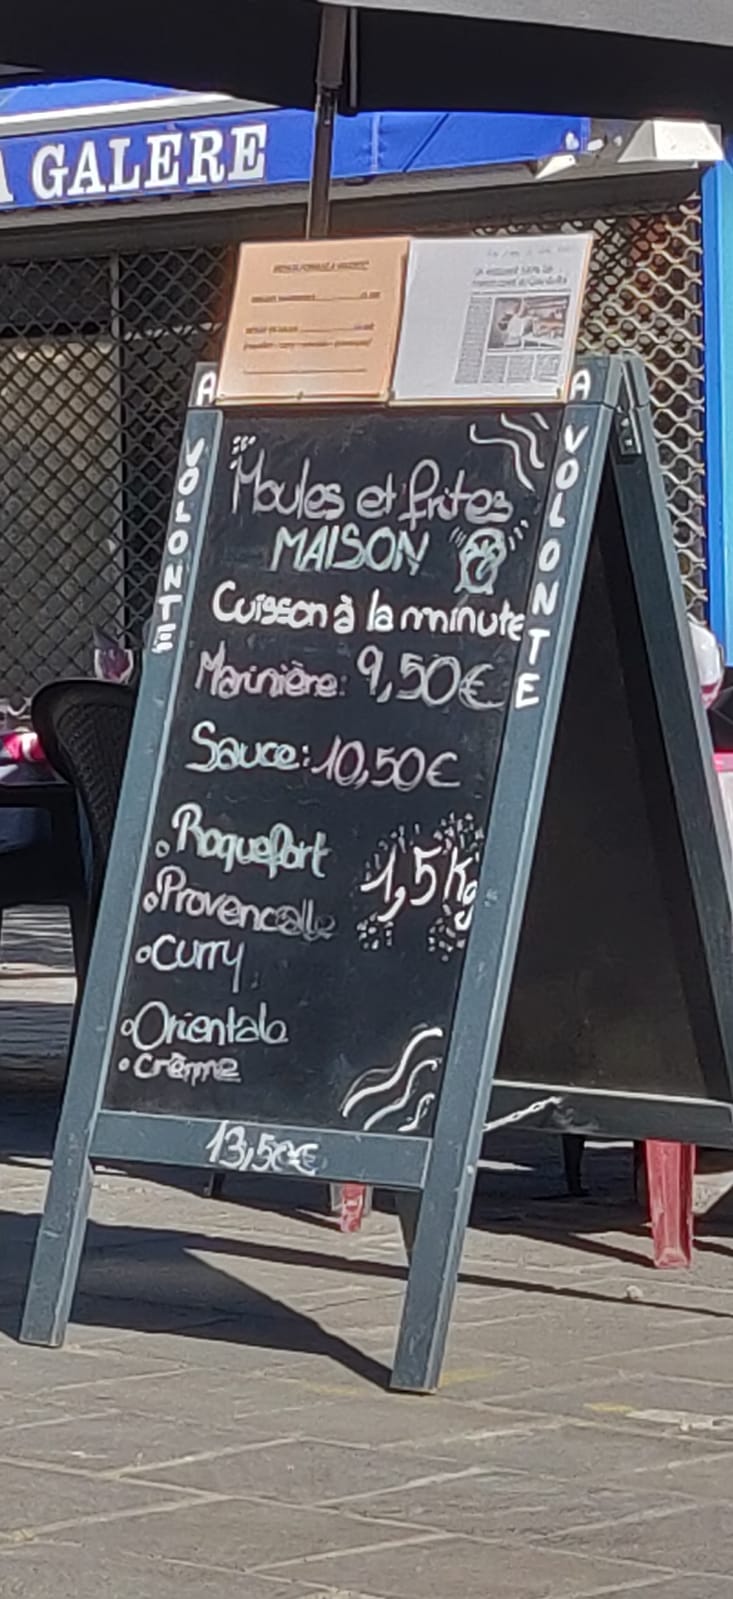 A GALÈRE
A
A
VOLONTÉ
VOLONTE
Moules et frites
MAISON
Cuisson à la minute
Marinière: 9,50€
Sauce: 10,50€
Roquefort
1,5Kg
Provencalle
Curry
Orientale
crème
13,50€